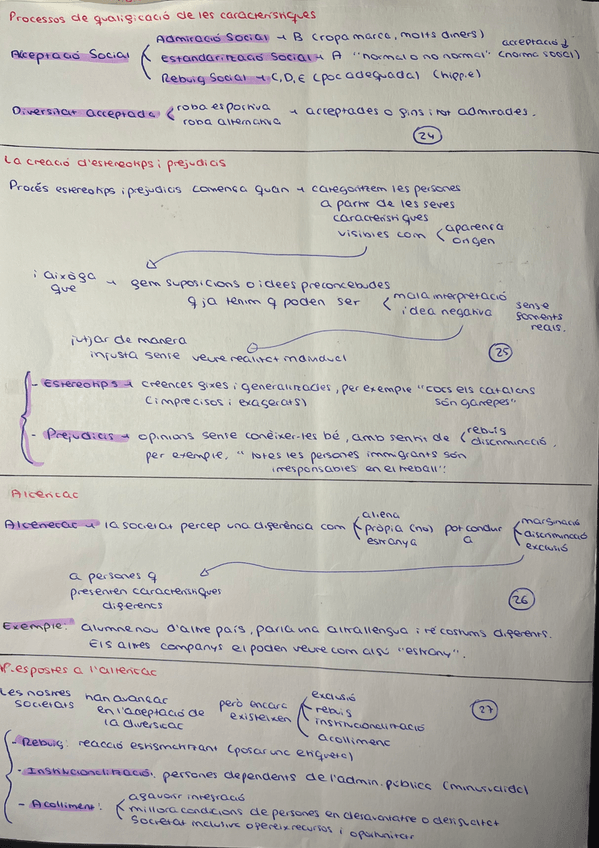 Processos de qualificació de les característiques
Acceptació Social
Admiració Social → B (ropa marca, molts diners)
estandarització Social → A "normal o no normal" (norma social)
acceptació
Rebuig Social → C, D, E (poc adequada) (hippie)
Diversitat acceptada
roba esportiva
roba alternativa
→ acceptades o fins i tot admirades.
24
La creació d'estereotips i prejudicis
Procés estereotips i prejudicis comença quan → categoritzem les persones
a partir de les seves
característiques
visibles com
aparença
origen
i aixòfa
que
→ fem suposicions o idees preconcebudes
q ja tenim q poden ser
mala interpretació
idea negativa
sense
foments
reals.
jutjar de manera
injusta sense veure realitat individual
25
- Estereotips → creences fixes i generalitzades, per exemple "tots els catalans
(imprecisos i exagerats)
són garrepes"
- Prejudicis → opinions sense conèixer-les bé, amb sentit de
rebuig
discriminació.
per exemple, "totes les persones immigrants són
irresponsables en el treball".
Alteritat
Alteritat → la societat percep una diferència com
aliena
pròpia (no)
estranya
pot conduir
a
marginació
discriminació
exclusió
a persones q
presenten característiques
diferents
26
Exemple: alumne nou d'altre país, parla una altra llengua i té costums diferents.
Els altres companys el poden veure com algú "estrany".
Respostes a l'alteritat
Les nostres
societats
han avançat
en l'aceptació de
la diversitat
però encara
existeixen
exclusió
rebuig
institucionalització
acolliment
27
- Rebuig: reacció estigmatitzant (posar una etiqueta)
- Institucionalització: persones dependents de l'admin. pública (minusvalida)
- Acolliment:
afavorir integració
millora condicions de persones en desavantatge o desigualtat
Societat inclusiva ofereix recursos i oportunitats